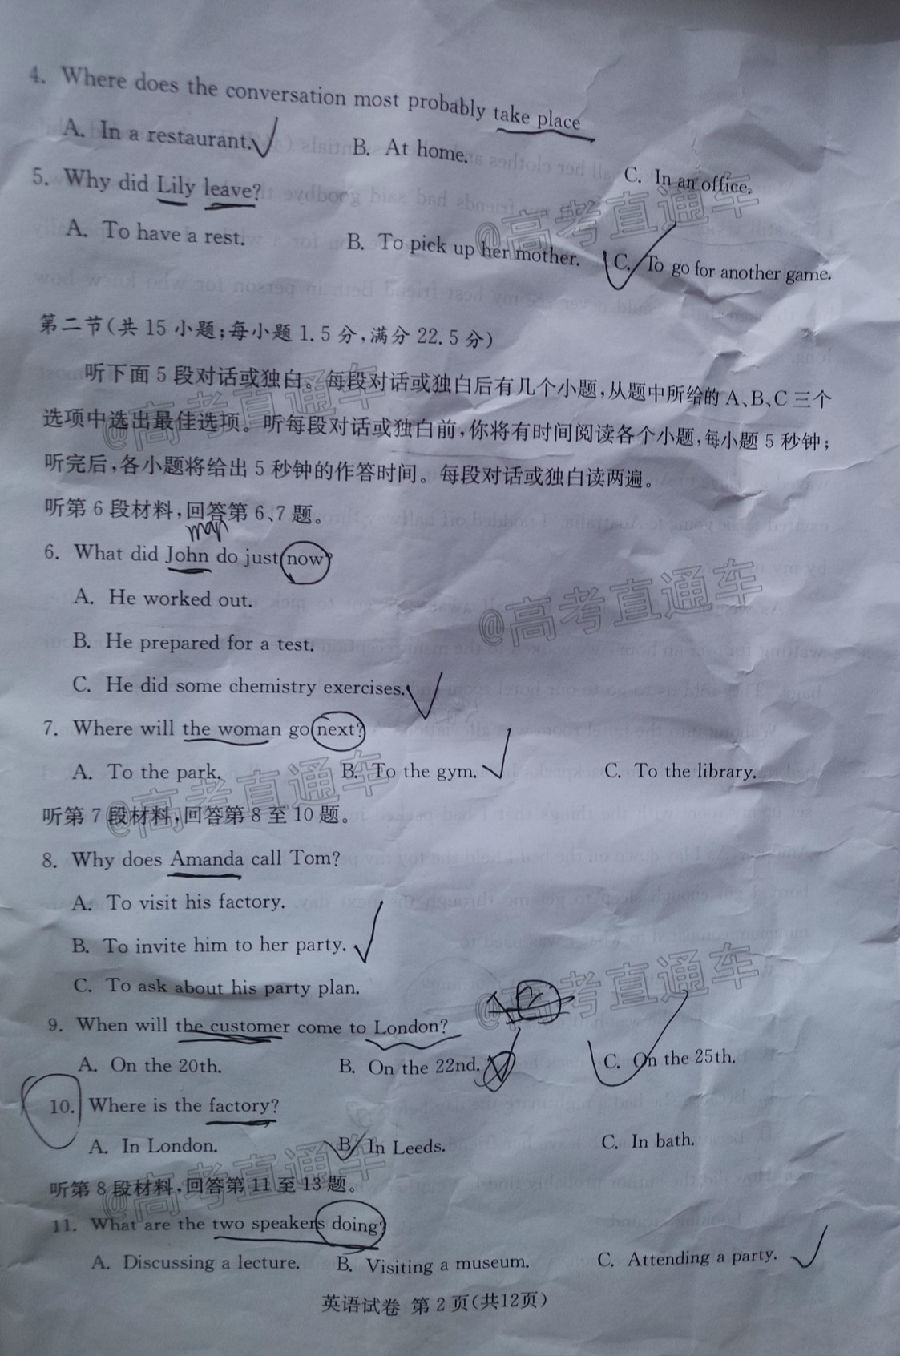 4. Where does the conversation most probably take place
A. In a restaurant. B. At home. C. In an office.
5. Why did Lily leave?
A. To have a rest. B. To pick up her mother. C. To go for another game.
@高考直通车
第二节(共 15 小题;每小题 1.5 分,满分 22.5 分)
听下面 5 段对话或独白。每段对话或独白后有几个小题,从题中所给的 A、B、C 三个
选项中选出最佳选项。听每段对话或独白前,你将有时间阅读各个小题,每小题 5 秒钟;
@高考直通车
听完后,各小题将给出 5 秒钟的作答时间。每段对话或独白读两遍。
听第 6 段材料,回答第 6、7 题。
man
6. What did John do just now?
A. He worked out.
@高考直通车
B. He prepared for a test.
C. He did some chemistry exercises.
7. Where will the woman go next?
A. To the park. B. To the gym. C. To the library.
@高考直通车
听第 7 段材料,回答第 8 至 10 题。
8. Why does Amanda call Tom?
A. To visit his factory.
B. To invite him to her party.
C. To ask about his party plan.
@高考直通车
9. When will the customer come to London?
A. On the 20th. B. On the 22nd. C. On the 25th.
10. Where is the factory?
A. In London. B. In Leeds. C. In bath.
@高考直通车
听第 8 段材料,回答第 11 至 13 题。
11. What are the two speakers doing?
A. Discussing a lecture. B. Visiting a museum. C. Attending a party.
英语试卷 第 2 页(共12页)